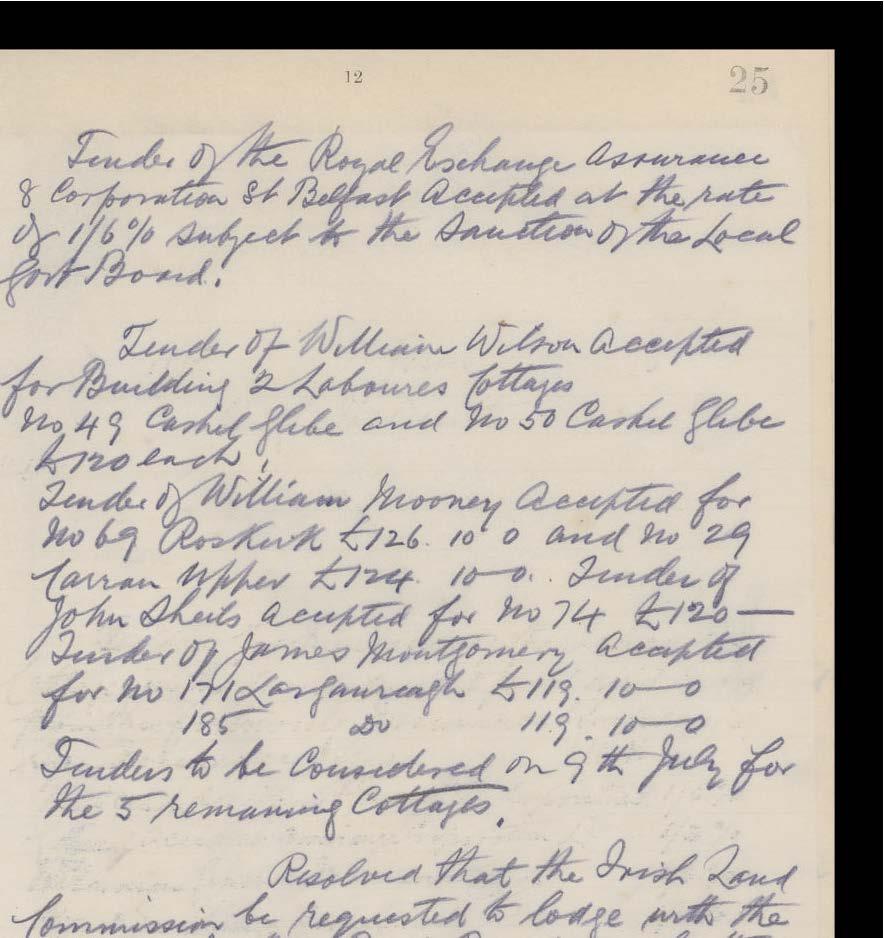 12
25
Tender of the Royal Exchange Assurance
8 Corporation St Belfast Accepted at the rate
of 1/6% subject to the Sanction of the Local
Govt Board.
Tender of William Wilson Accepted
for Building 2 Laboures Cottages
No 49 Cashel Glebe and No 50 Cashel Glebe
£120 each
Tender of William Mooney Accepted for
No 69 £126. 10 0 and No 29
Carran Upper £124. 10-0. Tender of
John Sheils accepted for No 74 £120 —
Tender of James Montgomery Accepted
for No 171 £119. 10-0
185 Do 119. 10-0
Tenders to be Considered on 9th July for
the 5 remaining Cottages.
Resolved that the Irish Land
Commission be requested to lodge with the